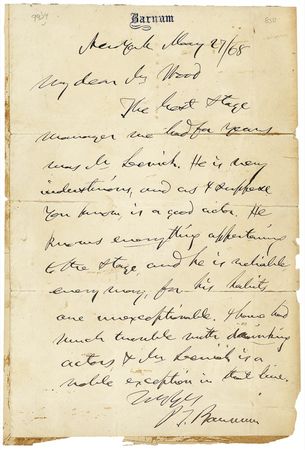 Barnum
New York May 27/68
My dear Mr Wood
The best Stage
manager we had for years
was Mr. He is very
industrious, and as I suppose
you know, is a good actor. He
knows everything appertaining
to the stage, and he is reliable
every way, for his habits
are unexceptionable. I have had
much trouble with drinking
actors & Mr is a
noble exception in that line.
P. T. Barnum